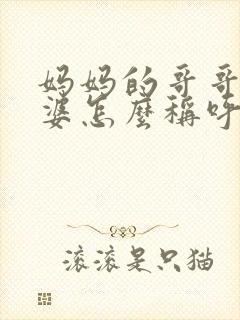 妈妈的哥哥
婆怎麼稱呼
滚滚是只猫